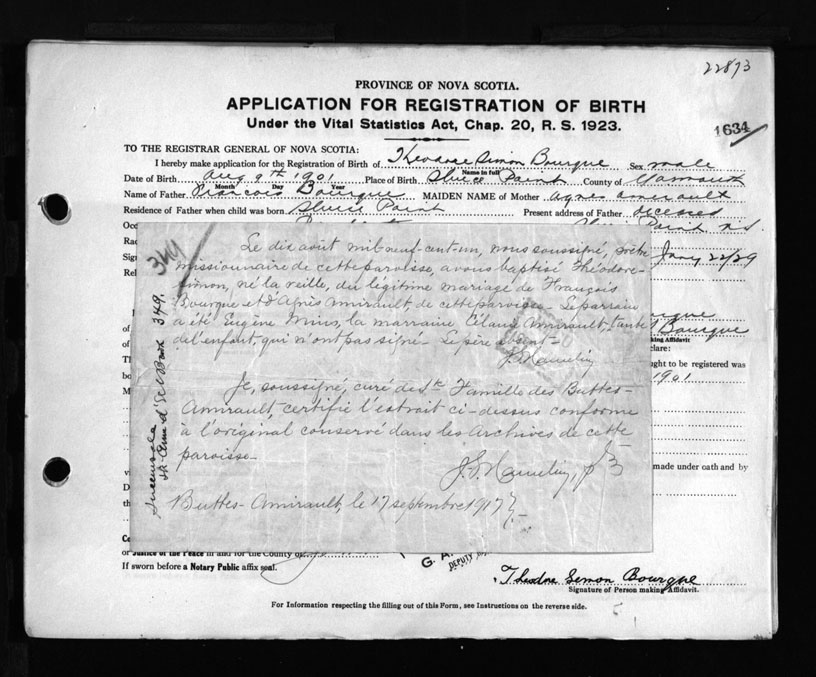 22873
PROVINCE OF NOVA SCOTIA.
APPLICATION FOR REGISTRATION OF BIRTH
Under the Vital Statistics Act, Chap. 20, R. S. 1923.
1634
TO THE REGISTRAR GENERAL OF NOVA SCOTIA:
I hereby make application for the Registration of Birth of Theodore Simon Bourque Sex male
Name in full
Date of Birth Aug 9th 1901 Place of Birth Sluice Point County of Yarmouth
Month Day Year
Name of Father Francois Bourque MAIDEN NAME of Mother Agnes Amirault
Residence of Father when child was born Sluice Point Present address of Father deceased
Occ
Rac
Sig Jany 22/29
Rel
349
Le dix août mil-neuf-cent-un, nous soussigné, prêtre
missionnaire de cette paroisse, avons baptisé Théodore-
Simon, né la veille, du légitime mariage de François
Bourque et d'Agnès Amirault, de cette paroisse. Le parrain
a été Eugène Mius, la marraine Amirault, tante
de l'enfant, qui n'ont pas signé. Le père absent.
Je, soussigné, curé de Ste Famille des Buttes-
Amirault, certifie l'extrait ci-dessus conforme
à l'original conservé dans les Archives de cette
paroisse.
Buttes-Amirault, le 17 septembre 1917
Ste Anne d'Eel Brook 349.
Bourque
king Affidavit
clare:
ught to be registered was
1901
made under oath and by
or Justice of the Peace in and for the County of
G. A.
DEPUTY
If sworn before a Notary Public affix seal.
Theodore Simon Bourque
Signature of Person making Affidavit.
For Information respecting the filling out of this Form, see Instructions on the reverse side.
5